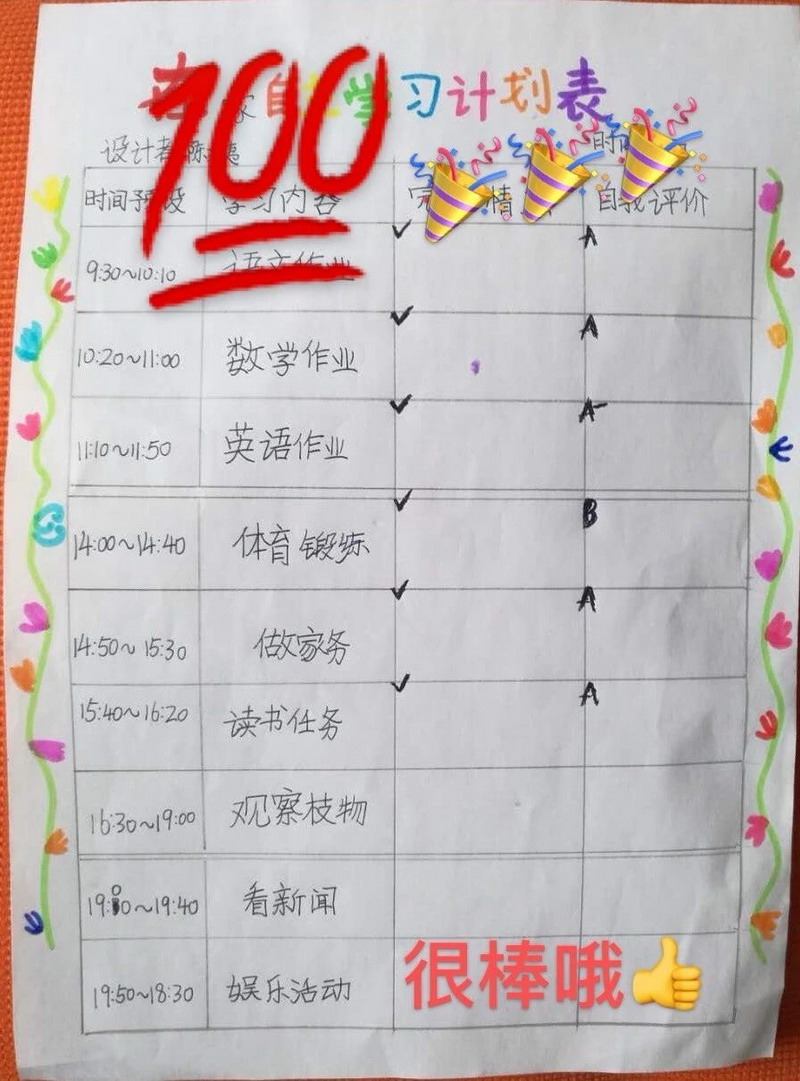 100
家自主学习计划表
设计者 陈
时间预设 学习内容 完 情 自我评价
9:30~10:10 语文作业 ✓ A
10:20~11:00 数学作业 ✓ A
11:10~11:50 英语作业 ✓ A-
14:00~14:40 体育锻炼 ✓ B
14:50~15:30 做家务 ✓ A
15:40~16:20 读书任务 ✓ A
16:30~19:00 观察枝物
19:00~19:40 看新闻
19:50~18:30 娱乐活动
很棒哦👍